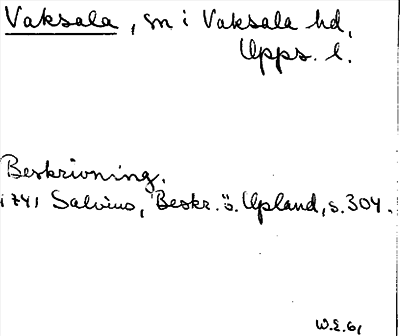 Vaksala, sn i Vaksala hd,
Upps. l.
Beskrivning.
1741 Salvius, Beskr. ö. Upland, s. 304.
W.E. 61